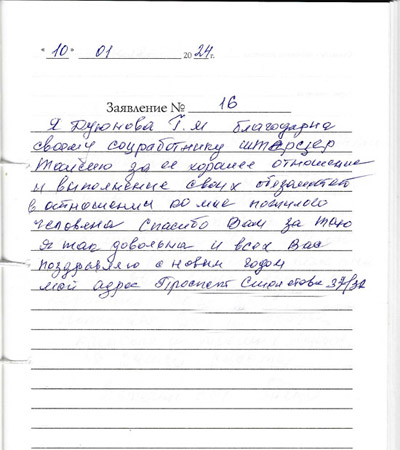 "10" 01 2024г.
Заявление № 16
Я Дуюнова Т.М благодарна
своему соцработнику
за ее хорошее отношение
и выполнение своих обязаностей
в отношении ко мне пожилого
человека Спасибо Вам за
Я так довольна и всех Вас
поздравляю с новым годом
мой адрес Проспект